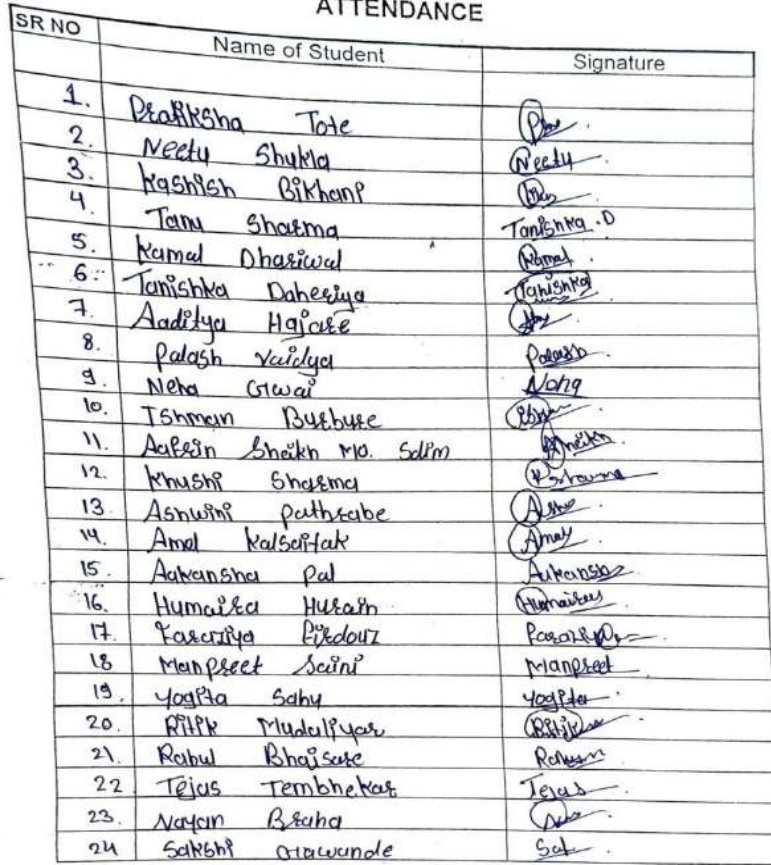 ATTENDANCE
SR NO Name of Student Signature
1. Pratiksha Tote
2. Neetu Shukla Neetu
3. Kashish Bikhani
4. Tanu Sharma Tanishka .D
5. Kamal Dhariwal Kamal
6. Tanishka Daheriya Tanishka
7. Aaditya Hajare
8. Palash Vaidya Palash
9. Neha Gwai Neha
10. Ishman Burbure
11. Aafrin Sheikh MO. Salim Sheikh
12. Khushi Sharma K.sharma
13. Ashwini Pathrabe
14. Amol Kalsaitak Amol
15. Aakansha Pal Aakansha
16. Humaira Husain Humaira
17. Faraziya Firdouz
18 Manpreet Saini Manpreet
19. Yogita Sahu Yogita
20. Ritik Mudaliyar Ritik
21. Rahul Bhaisare
22 Tejas Tembhekar Tejas
23. Nayan Braha
24 Sakshi Gawande